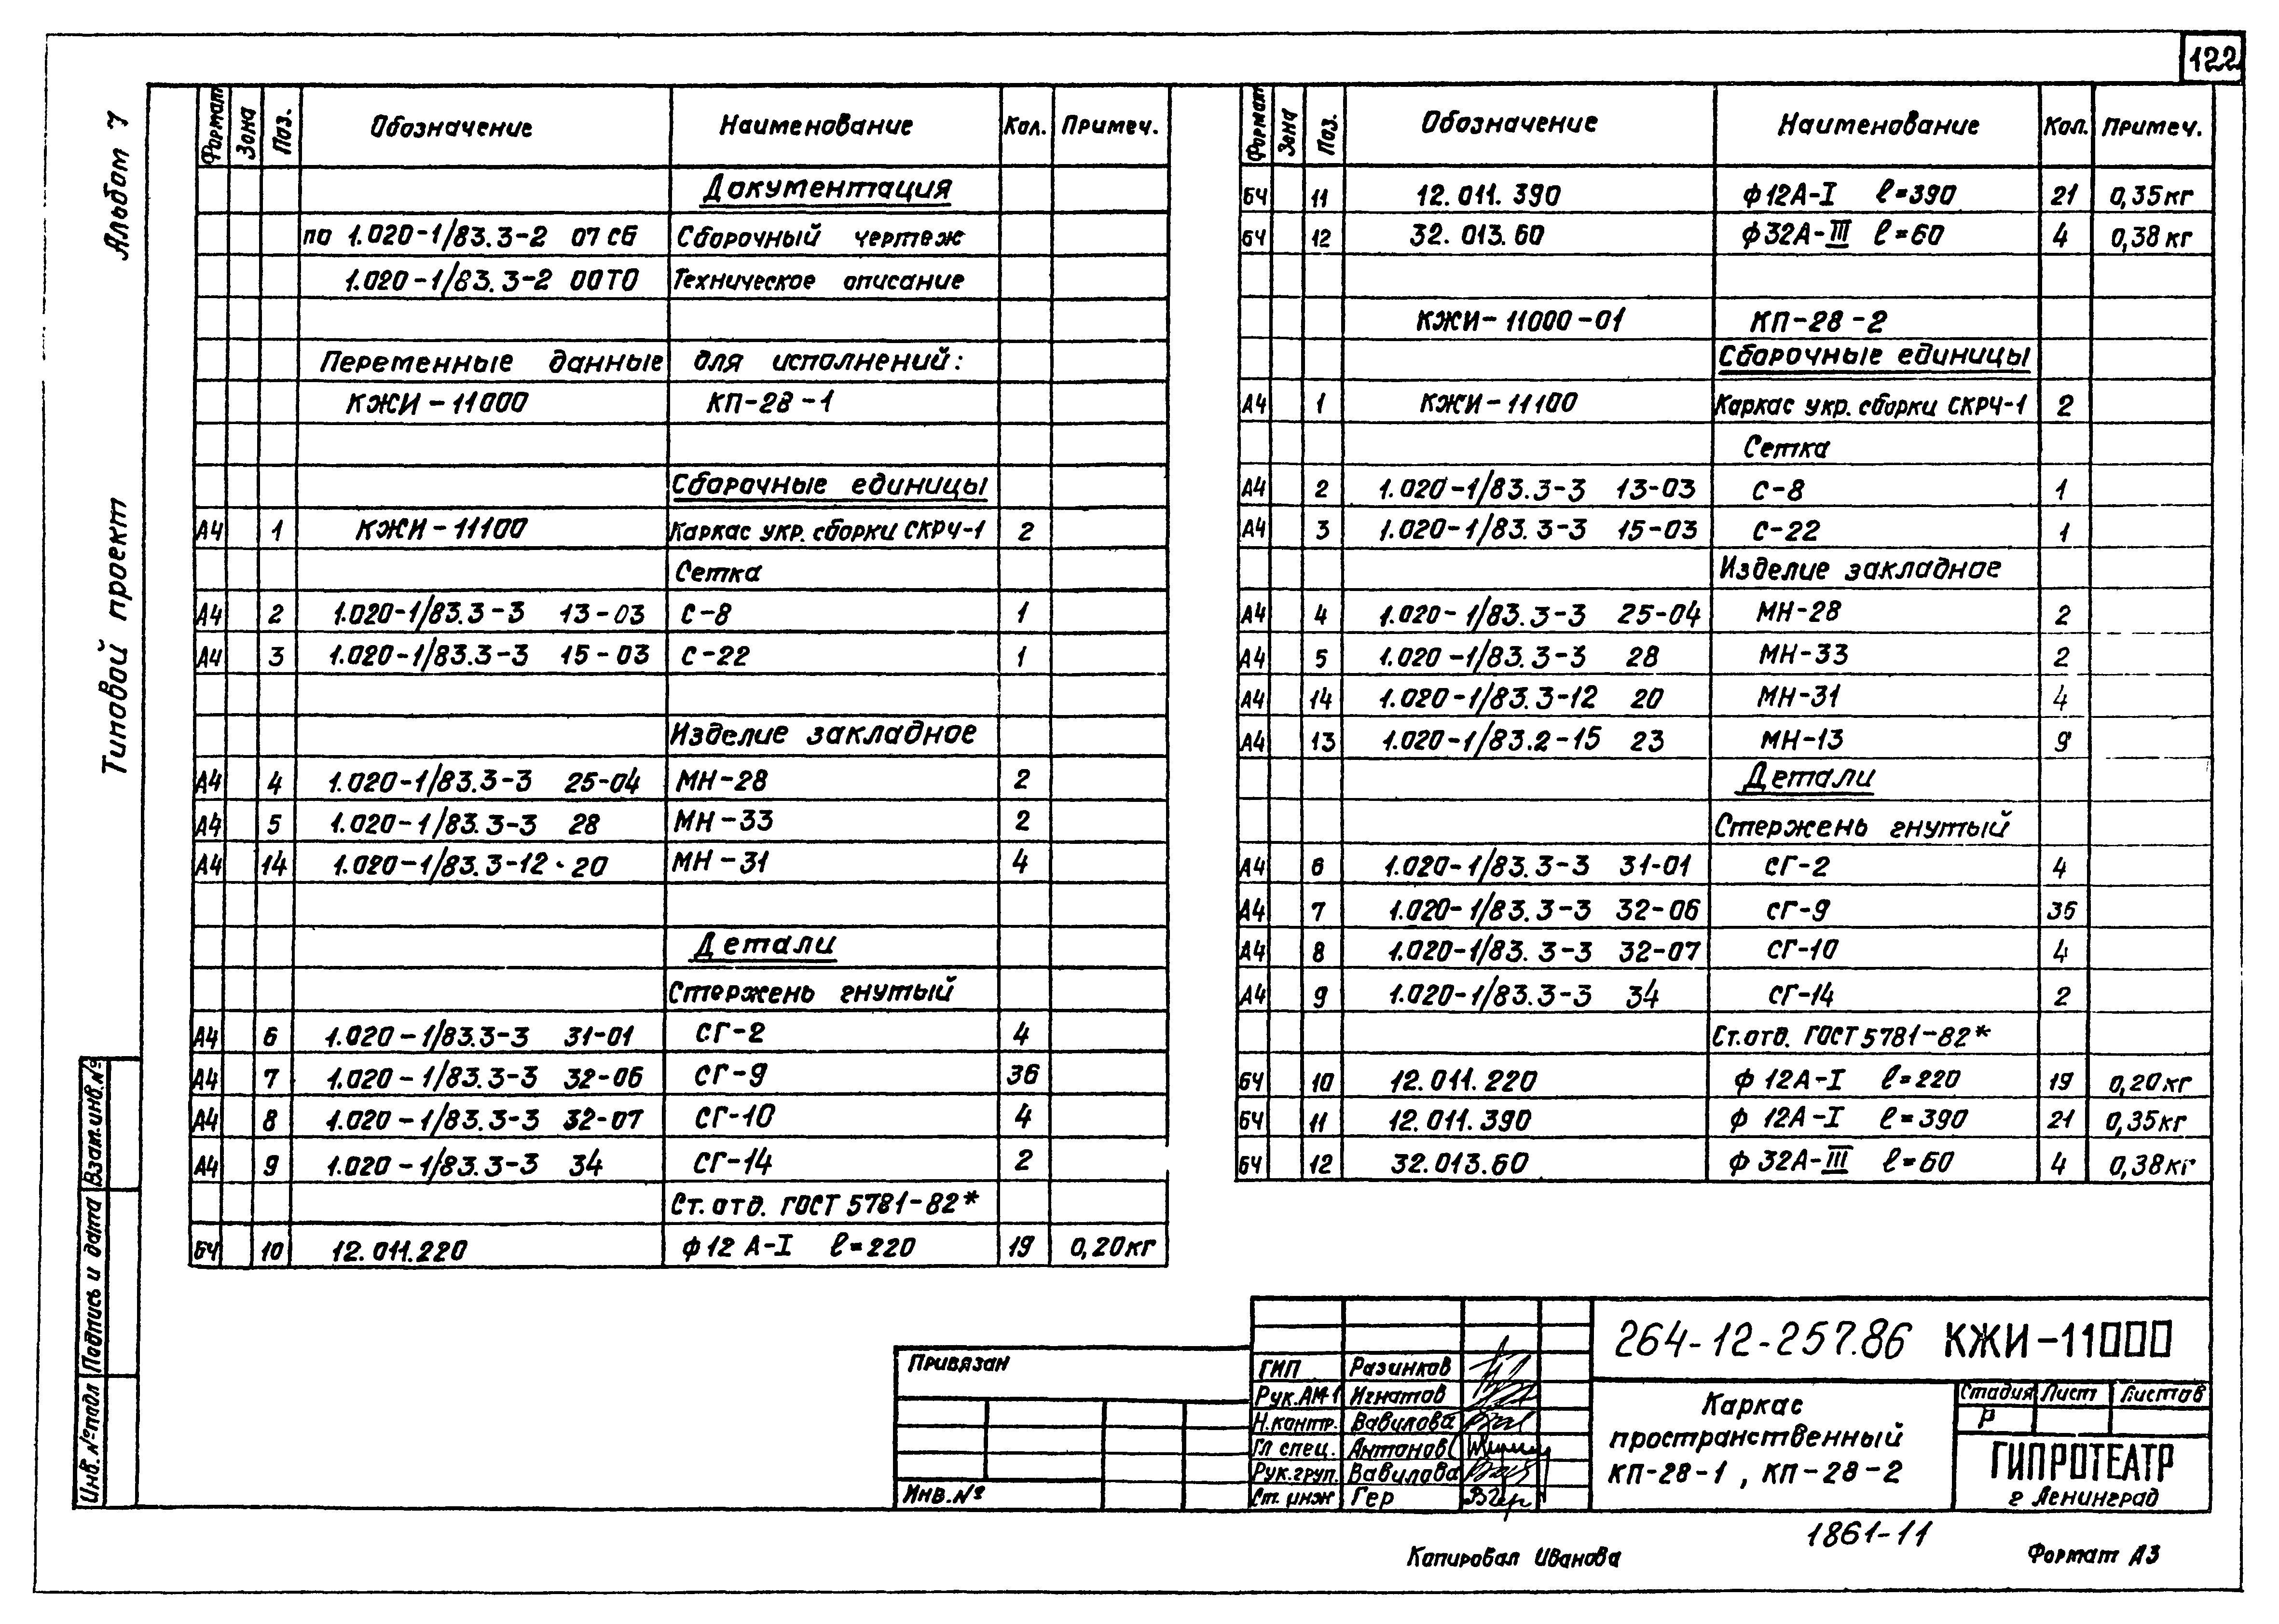 122
Альбом 7
Типовой проект
Формат Зона Поз. Обозначение Наименование Кол. Примеч.
Документация
по 1.020-1/83.3-2 07 СБ Сборочный чертеж
1.020-1/83.3-2 00ТО Техническое описание
Переменные данные для исполнений:
КЖИ-11000 КП-28-1
Сборочные единицы
А4 1 КЖИ-11100 Каркас укр. сборки СКРЧ-1 2
Сетка
А4 2 1.020-1/83.3-3 13-03 С-8 1
А4 3 1.020-1/83.3-3 15-03 С-22 1
Изделие закладное
А4 4 1.020-1/83.3-3 25-04 МН-28 2
А4 5 1.020-1/83.3-3 28 МН-33 2
А4 14 1.020-1/83.3-12 · 20 МН-31 4
Детали
Стержень гнутый
А4 6 1.020-1/83.3-3 31-01 СГ-2 4
А4 7 1.020-1/83.3-3 32-06 СГ-9 36
А4 8 1.020-1/83.3-3 32-07 СГ-10 4
А4 9 1.020-1/83.3-3 34 СГ-14 2
Ст. отд. ГОСТ 5781-82*
БЧ 10 12.011.220 ф12 А-I ℓ=220 19 0,20кг
Формат Зона Поз. Обозначение Наименование Кол. Примеч.
БЧ 11 12.011.390 ф12А-I ℓ=390 21 0,35кг
БЧ 12 32.013.60 ф32А-III ℓ=60 4 0,38кг
КЖИ-11000-01 КП-28-2
Сборочные единицы
А4 1 КЖИ-11100 Каркас укр. сборки СКРЧ-1 2
Сетка
А4 2 1.020-1/83.3-3 13-03 С-8 1
А4 3 1.020-1/83.3-3 15-03 С-22 1
Изделие закладное
А4 4 1.020-1/83.3-3 25-04 МН-28 2
А4 5 1.020-1/83.3-3 28 МН-33 2
А4 14 1.020-1/83.3-12 20 МН-31 4
А4 13 1.020-1/83.2-15 23 МН-13 9
Детали
Стержень гнутый
А4 6 1.020-1/83.3-3 31-01 СГ-2 4
А4 7 1.020-1/83.3-3 32-06 СГ-9 36
А4 8 1.020-1/83.3-3 32-07 СГ-10 4
А4 9 1.020-1/83.3-3 34 СГ-14 2
Ст. отд. ГОСТ 5781-82*
БЧ 10 12.011.220 ф 12А-I ℓ=220 19 0,20кг
БЧ 11 12.011.390 ф 12А-I ℓ=390 21 0,35кг
БЧ 12 32.013.60 ф 32А-III ℓ=60 4 0,38кг
Взам. инв. №
Подпись и дата
Инв. № подл
Привязан
Инв. №
ГИП Разинков
Рук. АМ-1 Игнатов
Н. контр. Вавилова
Гл спец. Антонов
Рук. груп. Вавилова
Ст. инж Гер
264-12-257.86 КЖИ-11000
Каркас
пространственный
КП-28-1, КП-28-2
Стадия Лист Листов
Р
ГИПРОТЕАТР
г Ленинград
1861-11
Копировал Иванова
Формат А3